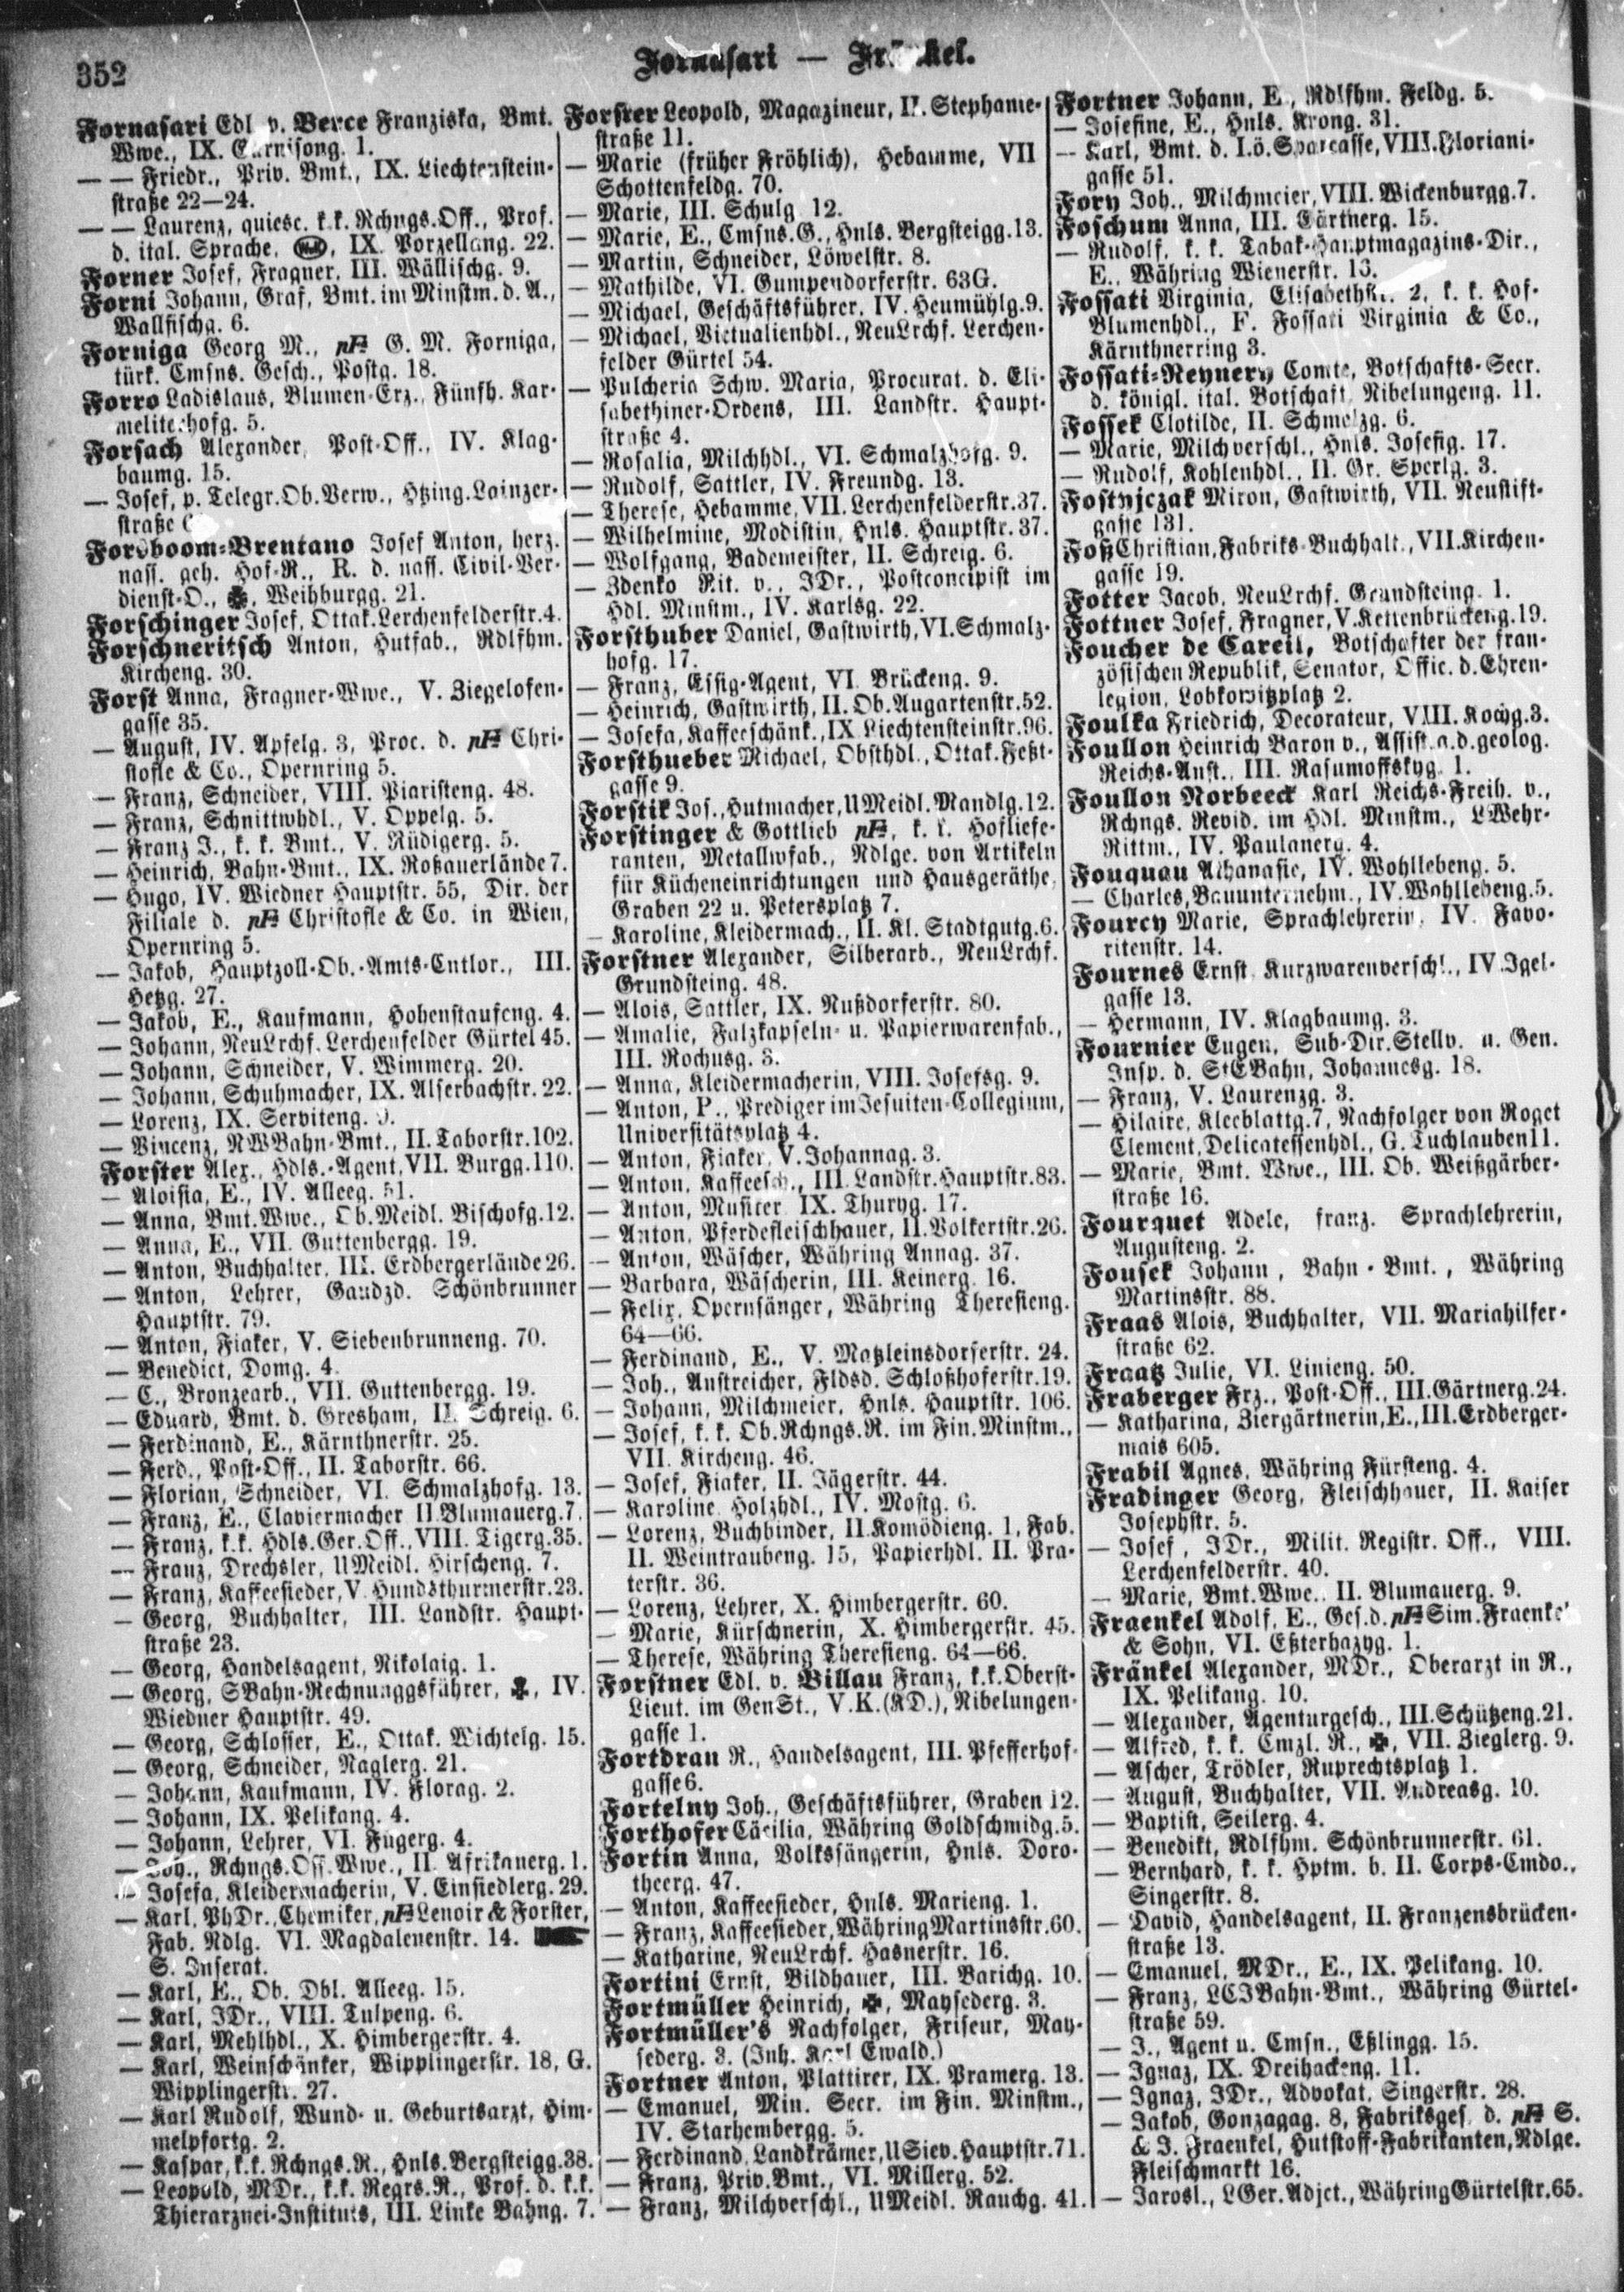 352
Fornasari — Fränkel.
Fornasari Edl v. Verce Franziska, Bmt.
Wwe., IX. Garnisong. 1.
— — Friedr., Priv. Bmt., IX. Liechtenstein-
straße 22—24.
— — Laurenz, quiesc. k.k. Rchngs.Off., Prof.
d. ital. Sprache, IX. Porzellang. 22.
Forner Josef, Fragner, III. Wällischg. 9.
Forni Johann, Graf, Bmt. im Minstm. d. A.,
Wallfischg. 6.
Forniga Georg M., G. M. Forniga,
türk. Cmsns. Gesch., Postg. 18.
Forro Ladislaus, Blumen-Erz., Fünfh. Kar-
meliterhofg. 5.
Forsach Alexander, Post-Off., IV. Klag-
baumg. 15.
— Josef, p. Telegr.Ob.Verw., Htzing.Lainzer-
straße
Forsboom-Brentano Josef Anton, herz.
nass. geh. Hof-R., R. d. nass. Civil-Ver-
dienst-O., ✠, Weihburgg. 21.
Forschinger Josef, Ottak.Lerchenfelderstr.4.
Forschneritsch Anton, Hutfab., Rdlfhm.
Kircheng. 30.
Forst Anna, Fragner-Wwe., V. Ziegelofen-
gasse 35.
— August, IV. Apfelg. 3, Proc. d. Chri-
stofle & Co., Opernring 5.
— Franz, Schneider, VIII. Piaristeng. 48.
— Franz, Schnittwhdl., V. Oppelg. 5.
— Franz J., k. k. Bmt., V. Rüdigerg. 5.
— Heinrich, Bahn-Bmt., IX. Roßauerlände 7.
— Hugo, IV. Wiedner Hauptstr. 55, Dir. der
Filiale d. Christofle & Co. in Wien,
Opernring 5.
— Jakob, Hauptzoll-Ob.-Amts-Cntlor., III.
Hetzg. 27.
— Jakob, E., Kaufmann, Hohenstaufeng. 4.
— Johann, NeuLrchf. Lerchenfelder Gürtel 45.
— Johann, Schneider, V. Wimmerg. 20.
— Johann, Schuhmacher, IX. Alserbachstr. 22.
— Lorenz, IX. Serviteng.
— Vincenz, NWBahn-Bmt., II. Taborstr.102.
Forster Alex., Hdls.-Agent, VII. Burgg.110.
— Aloisia, E., IV. Alleeg. 51.
— Anna, Bmt.Wwe., Ob.Meidl. Bischofg.12.
— Anna, E., VII. Guttenbergg. 19.
— Anton, Buchhalter, III. Erdbergerlände 26.
— Anton, Lehrer, Gaudzd. Schönbrunner
Hauptstr. 79.
— Anton, Fiaker, V. Siebenbrunneng. 70.
— Benedict, Domg. 4.
— C., Bronzearb., VII. Guttenbergg. 19.
— Eduard, Bmt. d. Gresham, II. Schreig. 6.
— Ferdinand, E., Kärnthnerstr. 25.
— Ferd., Post-Off., II. Taborstr. 66.
— Florian, Schneider, VI. Schmalzhofg. 13.
— Franz, E., Claviermacher II. Blumauerg.7.
— Franz, k.k. Hdls.Ger.Off., VIII. Tigerg.35.
— Franz, Drechsler, UMeidl. Hirscheng. 7.
— Franz, Kaffeesieder, V. Hundsthurmerstr.23.
— Georg, Buchhalter, III. Landstr. Haupt-
straße 23.
— Georg, Handelsagent, Nikolaig. 1.
— Georg, SBahn-Rechnunggsführer, IV.
Wiedner Hauptstr. 49.
— Georg, Schlosser, E., Ottak. Wichtelg. 15.
— Georg, Schneider, Naglerg. 21.
— Johann, Kaufmann, IV. Florag. 2.
— Johann, IX. Pelikang. 4.
— Johann, Lehrer, VI. Fügerg. 4.
— Joh., Rchngs.Off.Wwe., II. Afrikanerg. 1.
— Josefa, Kleidermacherin, V. Einsiedlerg. 29.
— Karl, PhDr., Chemiker, Lenoir & Forster,
Fab. Ndlg. VI. Magdalenenstr. 14.
S. Inserat.
— Karl, E., Ob. Dbl. Alleeg. 15.
— Karl, JDr., VIII. Tulpeng. 6.
— Karl, Mehlhdl., X. Himbergerstr. 4.
— Karl, Weinschänker, Wipplingerstr. 18, G.
Wipplingerstr. 27.
— Karl Rudolf, Wund- u. Geburtsarzt, Him-
melpfortg. 2.
— Kaspar, k.k. Rchngs.R., Hnls. Bergsteigg.38.
— Leopold, MDr., k.k. Regrs.R., Prof. d. k.k.
Thierarznei-Instituts, III. Linke Bahng. 7.
Forster Leopold, Magazineur, II. Stephanie-
straße 11.
— Marie (früher Fröhlich), Hebamme, VII
Schottenfeldg. 70.
— Marie, III. Schulg 12.
— Marie, E., Cmsns.G., Hnls. Bergsteigg.13.
— Martin, Schneider, Löwelstr. 8.
— Mathilde, VI. Gumpendorferstr. 63G.
— Michael, Geschäftsführer, IV. Heumühlg.9.
— Michael, Victualienhdl., NeuLrchf. Lerchen-
felder Gürtel 54.
— Pulcheria Schw. Maria, Procurat. d. Eli-
sabethiner-Ordens, III. Landstr. Haupt-
straße 4.
— Rosalia, Milchhdl., VI. Schmalzhofg. 9.
— Rudolf, Sattler, IV. Freundg. 13.
— Therese, Hebamme, VII. Lerchenfelderstr.37.
— Wilhelmine, Modistin, Hnls. Hauptstr. 37.
— Wolfgang, Bademeister, II. Schreig. 6.
— Zdenko Rit. v., JDr., Postconcipist im
Hdl. Minstm., IV. Karlsg. 22.
Forsthuber Daniel, Gastwirth, VI. Schmalz-
hofg. 17.
— Franz, Essig-Agent, VI. Brückeng. 9.
— Heinrich, Gastwirth, II. Ob. Augartenstr.52.
— Josefa, Kaffeeschänk., IX. Liechtensteinstr.96.
Forsthueber Michael, Obsthdl., Ottak. Feßt-
gasse 9.
Forstik Jos., Hutmacher, UMeidl. Mandlg.12.
Forstinger & Gottlieb, k. k. Hofliefe-
ranten, Metallwfab., Ndlge. von Artikeln
für Kücheneinrichtungen und Hausgeräthe,
Graben 22 u. Petersplatz 7.
— Karoline, Kleidermach., II. Kl. Stadtgutg.6.
Forstner Alexander, Silberarb., NeuLrchf.
Grundsteing. 48.
— Alois, Sattler, IX. Nußdorferstr. 80.
— Amalie, Falzkapseln- u. Papierwarenfab.,
III. Rochusg. 3.
— Anna, Kleidermacherin, VIII. Josefsg. 9.
— Anton, P., Prediger im Jesuiten-Collegium,
Universitätsplatz 4.
— Anton, Fiaker, V. Johannag. 3.
— Anton, Kaffeesch., III. Landstr.Hauptstr.83.
— Anton, Musiker IX. Thuryg. 17.
— Anton, Pferdefleischhauer, II. Volkertstr.26.
— Anton, Wäscher, Währing Annag. 37.
— Barbara, Wäscherin, III. Keinerg. 16.
— Felix, Opernsänger, Währing Theresieng.
64—66.
— Ferdinand, E., V. Matzleinsdorferstr. 24.
— Joh., Anstreicher, Fldsd. Schloßhoferstr.19.
— Johann, Milchmeier, Hnls. Hauptstr. 106.
— Josef, k. k. Ob.Rchngs.R. im Fin.Minstm.,
VII. Kircheng. 46.
— Josef, Fiaker, II. Jägerstr. 44.
— Karoline, Holzhdl., IV. Mostg. 6.
— Lorenz, Buchbinder, II. Komödieng. 1, Fab.
II. Weintraubeng. 15, Papierhdl. II. Pra-
terstr. 36.
— Lorenz, Lehrer, X. Himbergerstr. 60.
— Marie, Kürschnerin, X. Himbergerstr. 45.
— Therese, Währing Theresieng. 64—66.
Forstner Edl. v. Billau Franz, k.k. Oberst-
Lieut. im GenSt., V.K.(KD.), Nibelungen-
gasse 1.
Fortdran R., Handelsagent, III. Pfefferhof-
gasse 6.
Fortelny Joh., Geschäftsführer, Graben 12.
Forthofer Cäcilia, Währing Goldschmidg.5.
Fortin Anna, Volkssängerin, Hnls. Doro-
theerg. 47.
— Anton, Kaffeesieder, Hnls. Marieng. 1.
— Franz, Kaffeesieder, Währing Martinsstr.60.
— Katharine, NeuLrchf. Hasnerstr. 16.
Fortini Ernst, Bildhauer, III. Barichg. 10.
Fortmüller Heinrich, ✠, Maysederg. 3.
Fortmüller's Nachfolger, Friseur, May-
sederg. 3. (Inh. Karl Ewald.)
Fortner Anton, Plattirer, IX. Pramerg. 13.
— Emanuel, Min. Secr. im Fin. Minstm.,
IV. Starhembergg. 5.
— Ferdinand, Landkrämer, USiev.Hauptstr.71.
— Franz, Priv.Bmt., VI. Millerg. 52.
— Franz, Milchverschl., UMeidl. Rauchg. 41.
Fortner Johann, E., Rdlfhm. Feldg. 5.
— Josefine, E., Hnls. Krong. 31.
— Karl, Bmt. d. I.ö.Sparcasse, VIII. Floriani-
gasse 51.
Fory Joh., Milchmeier, VIII. Wickenburgg.7.
Foschum Anna, III. Gärtnerg. 15.
— Rudolf, k. k. Tabak-Hauptmagazins-Dir.,
E., Währing Wienerstr. 13.
Fossati Virginia, Elisabethstr. 2, k. k. Hof-
Blumenhdl., F. Fossati Virginia & Co.,
Kärnthnerring 3.
Fossati-Reynery Comte, Botschafts-Secr.
d. königl. ital. Botschaft, Nibelungeng. 11.
Fossek Clotilde, II. Schmelzg. 6.
— Marie, Milchverschl., Hnls. Josefig. 17.
— Rudolf, Kohlenhdl., II. Gr. Sperlg. 3.
Fostyjczak Miron, Gastwirth, VII. Neustift-
gasse 131.
Foß Christian, Fabriks-Buchhalt., VII. Kirchen-
gasse 19.
Fotter Jacob, NeuLrchf. Grundsteing. 1.
Fottner Josef, Fragner, V. Kettenbrückeng.19.
Foucher de Careil, Botschafter der fran-
zösischen Republik, Senator, Offic. d. Ehren-
legion, Lobkowitzplatz 2.
Foulka Friedrich, Decorateur, VIII. Kochg.3.
Foullon Heinrich Baron v., Assist. a.d. geolog.
Reichs-Anst., III. Rasumoffskyg. 1.
Foullon Norbeeck Karl Reichs-Freih. v.,
Rchngs. Revid. im Hdl. Minstm., LWehr-
Rittm., IV. Paulanerg. 4.
Fouquau Athanasie, IV. Wohllebeng. 5.
— Charles, Bauunternehm., IV. Wohllebeng.5.
Fourcy Marie, Sprachlehrerin, IV. Favo-
ritenstr. 14.
Fournes Ernst Kurzwarenverschl., IV. Igel-
gasse 13.
— Hermann, IV. Klagbaumg. 3.
Fournier Eugen, Sub-Dir.Stellv. u. Gen.
Insp. d. StEBahn, Johannesg. 18.
— Franz, V. Laurenzg. 3.
— Hilaire, Kleeblattg.7, Nachfolger von Roget
Clement, Delicatessenhdl., G. Tuchlauben 11.
— Marie, Bmt. Wwe., III. Ob. Weißgärber-
straße 16.
Fourquet Adele, franz. Sprachlehrerin,
Augusteng. 2.
Fousek Johann, Bahn-Bmt., Währing
Martinsstr. 88.
Fraas Alois, Buchhalter, VII. Mariahilfer-
straße 62.
Fraatz Julie, VI. Linieng. 50.
Fraberger Frz., Post-Off., III. Gärtnerg.24.
— Katharina, Ziergärtnerin, E., III. Erdberger-
mais 605.
Frabil Agnes, Währing Fürsteng. 4.
Fradinger Georg, Fleischhauer, II. Kaiser
Josephstr. 5.
— Josef, JDr., Milit. Registr. Off., VIII.
Lerchenfelderstr. 40.
— Marie, Bmt.Wwe.. II. Blumauerg. 9.
Fraenkel Adolf, E., Ges.d. Sim. Fraenkel
& Sohn, VI. Eßterhazyg. 1.
Fränkel Alexander, MDr., Oberarzt in R.,
IX. Pelikang. 10.
— Alexander, Agenturgesch., III. Schützeng.21.
— Alfred, k. k. Cmzl. R., ✠, VII. Zieglerg. 9.
— Ascher, Trödler, Ruprechtsplatz 1.
— August, Buchhalter, VII. Andreasg. 10.
— Baptist, Seilerg. 4.
— Benedikt, Rdlfhm. Schönbrunnerstr. 61.
— Bernhard, k. k. Hptm. b. II. Corps-Cmdo.,
Singerstr. 8.
— David, Handelsagent, II. Franzensbrücken-
straße 13.
— Emanuel, MDr., E., IX. Pelikang. 10.
— Franz, LCJBahn-Bmt., Währing Gürtel-
straße 59.
— J., Agent u. Cmsn., Eßlingg. 15.
— Ignaz, IX. Dreihackeng. 11.
— Ignaz, JDr., Advokat, Singerstr. 28.
— Jakob, Gonzagag. 8, Fabriksges. d. S.
& J. Fraenkel, Hutstoff-Fabrikanten, Ndlge.
Fleischmarkt 16.
— Jarosl., LGer.Adjct., Währing Gürtelstr.65.